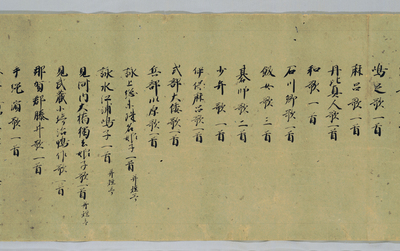 嶋足歌一首
麻呂歌一首
丹比真人歌一首
和歌一首
石川卿歌一首
歌三首
碁師歌二首
少弁歌一首
伊保麻呂歌一首
式部大倭歌一首
兵部川原歌一首
詠上総末珠名娘子一首并短哥
詠水江浦嶋子一首并短哥
見河内大橋獨去娘子歌一首并短哥
見武蔵小埼沼鴨作歌一首
那賀郡歌一首
手綱濱歌一首